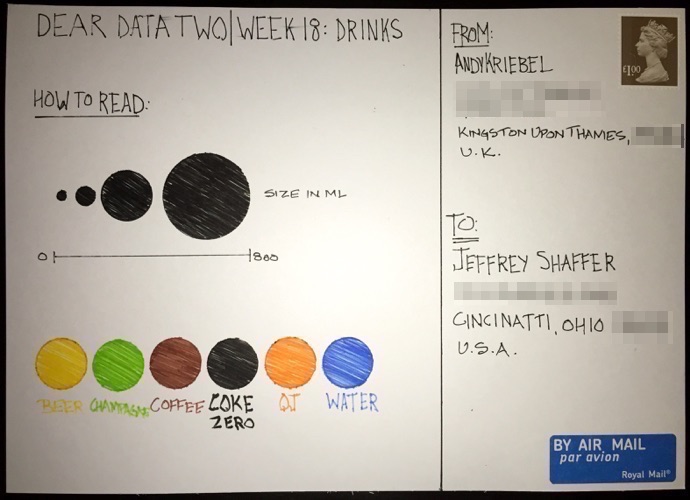 DEAR DATA TWO|WEEK 18: DRINKS
HOW TO READ:
SIZE IN ML
0 800
BEER CHAMPAGNE COFFEE COKE ZERO OJ WATER
FROM:
ANDY KRIEBEL
KINGSTON UPON THAMES,
U.K.
£1.00
TO:
JEFFREY SHAFFER
CINCINATTI, OHIO
U.S.A.
BY AIR MAIL
par avion
Royal Mail®